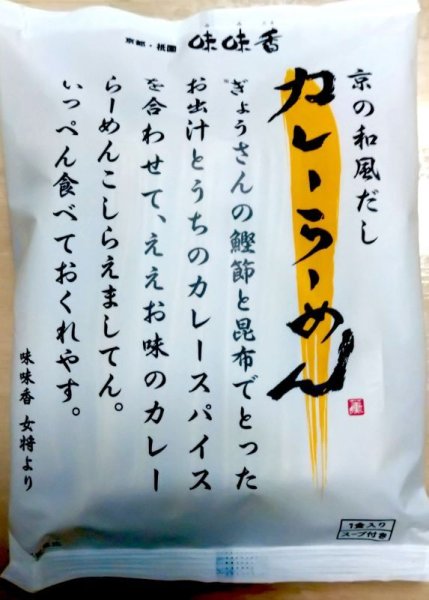 京都・祇園 味味香
京の和風だし
カレーらーめん
ぎょうさんの鰹節と昆布でとった
お出汁とうちのカレースパイス
を合わせて、ええお味のカレー
らーめんこしらえましてん。
いっぺん食べておくれやす。
味味香 女将より
1食入り
スープ付き